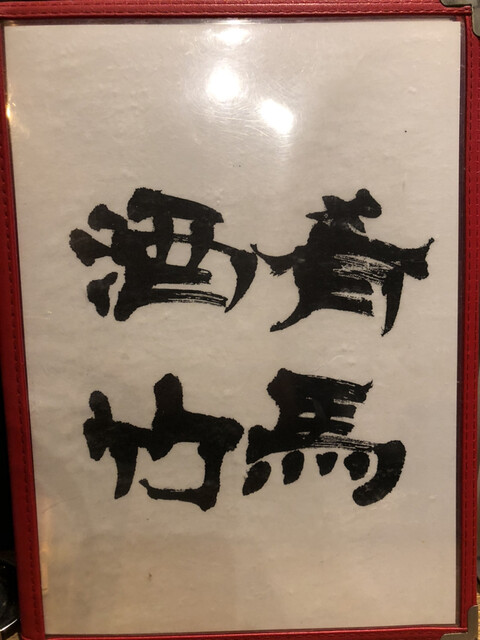 酒肴
竹馬